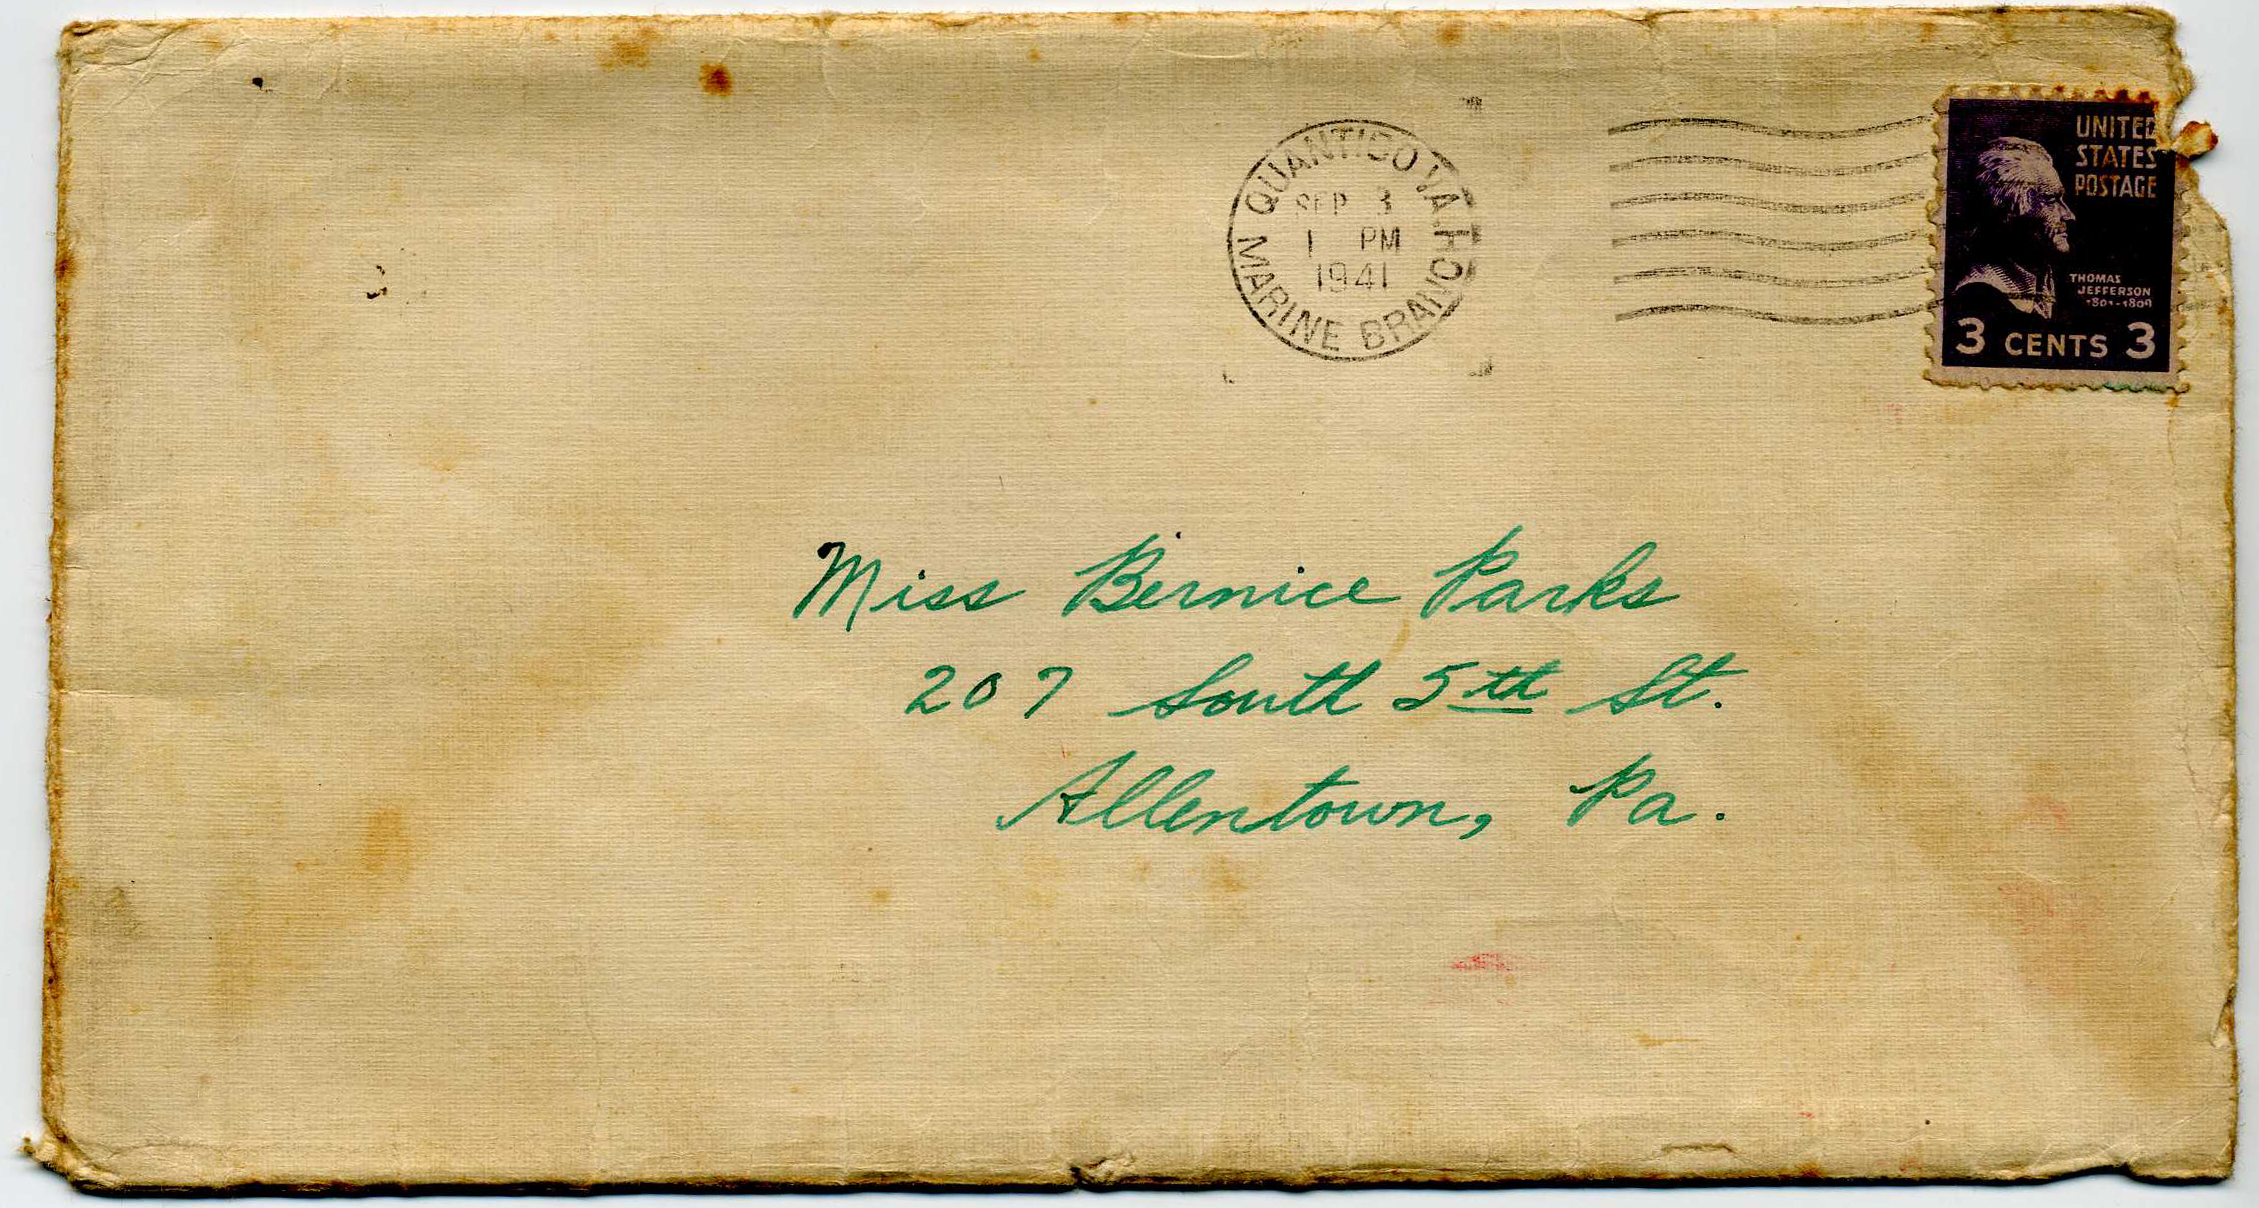 QUANTICO VA.
SEP 3
1 PM
1941
MARINE BRANCH
UNITED
STATES
POSTAGE
THOMAS
JEFFERSON
1801-1809
3 CENTS 3
Miss Bernice Parks
207 South 5th St.
Allentown, Pa.